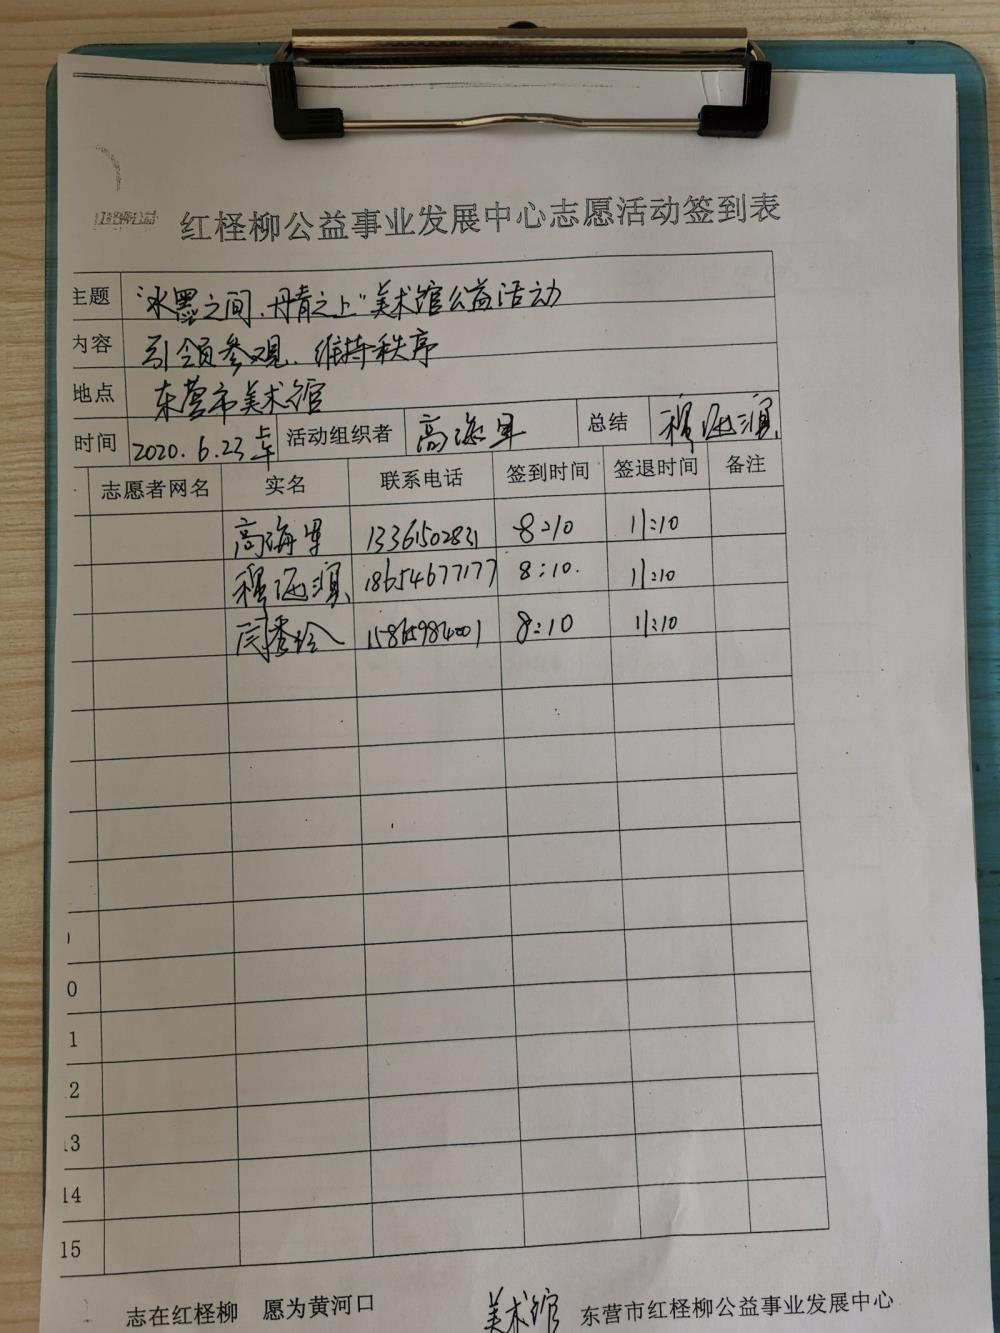 红柽柳公益
红柽柳公益事业发展中心志愿活动签到表
主题 “水墨之间、丹青之上”美术馆公益活动
内容 引领参观、维持秩序
地点 东营市美术馆
时间 2020.6.23 活动组织者 高海军 总结 程海滨
志愿者网名 实名 联系电话 签到时间 签退时间 备注
高海军 13361502831 8:10 11:10
程海滨 18654677177 8:10. 11:10
闫秀玲 15865984001 8:10 11:10
0
1
2
13
14
15
志在红柽柳 愿为黄河口 美术馆 东营市红柽柳公益事业发展中心